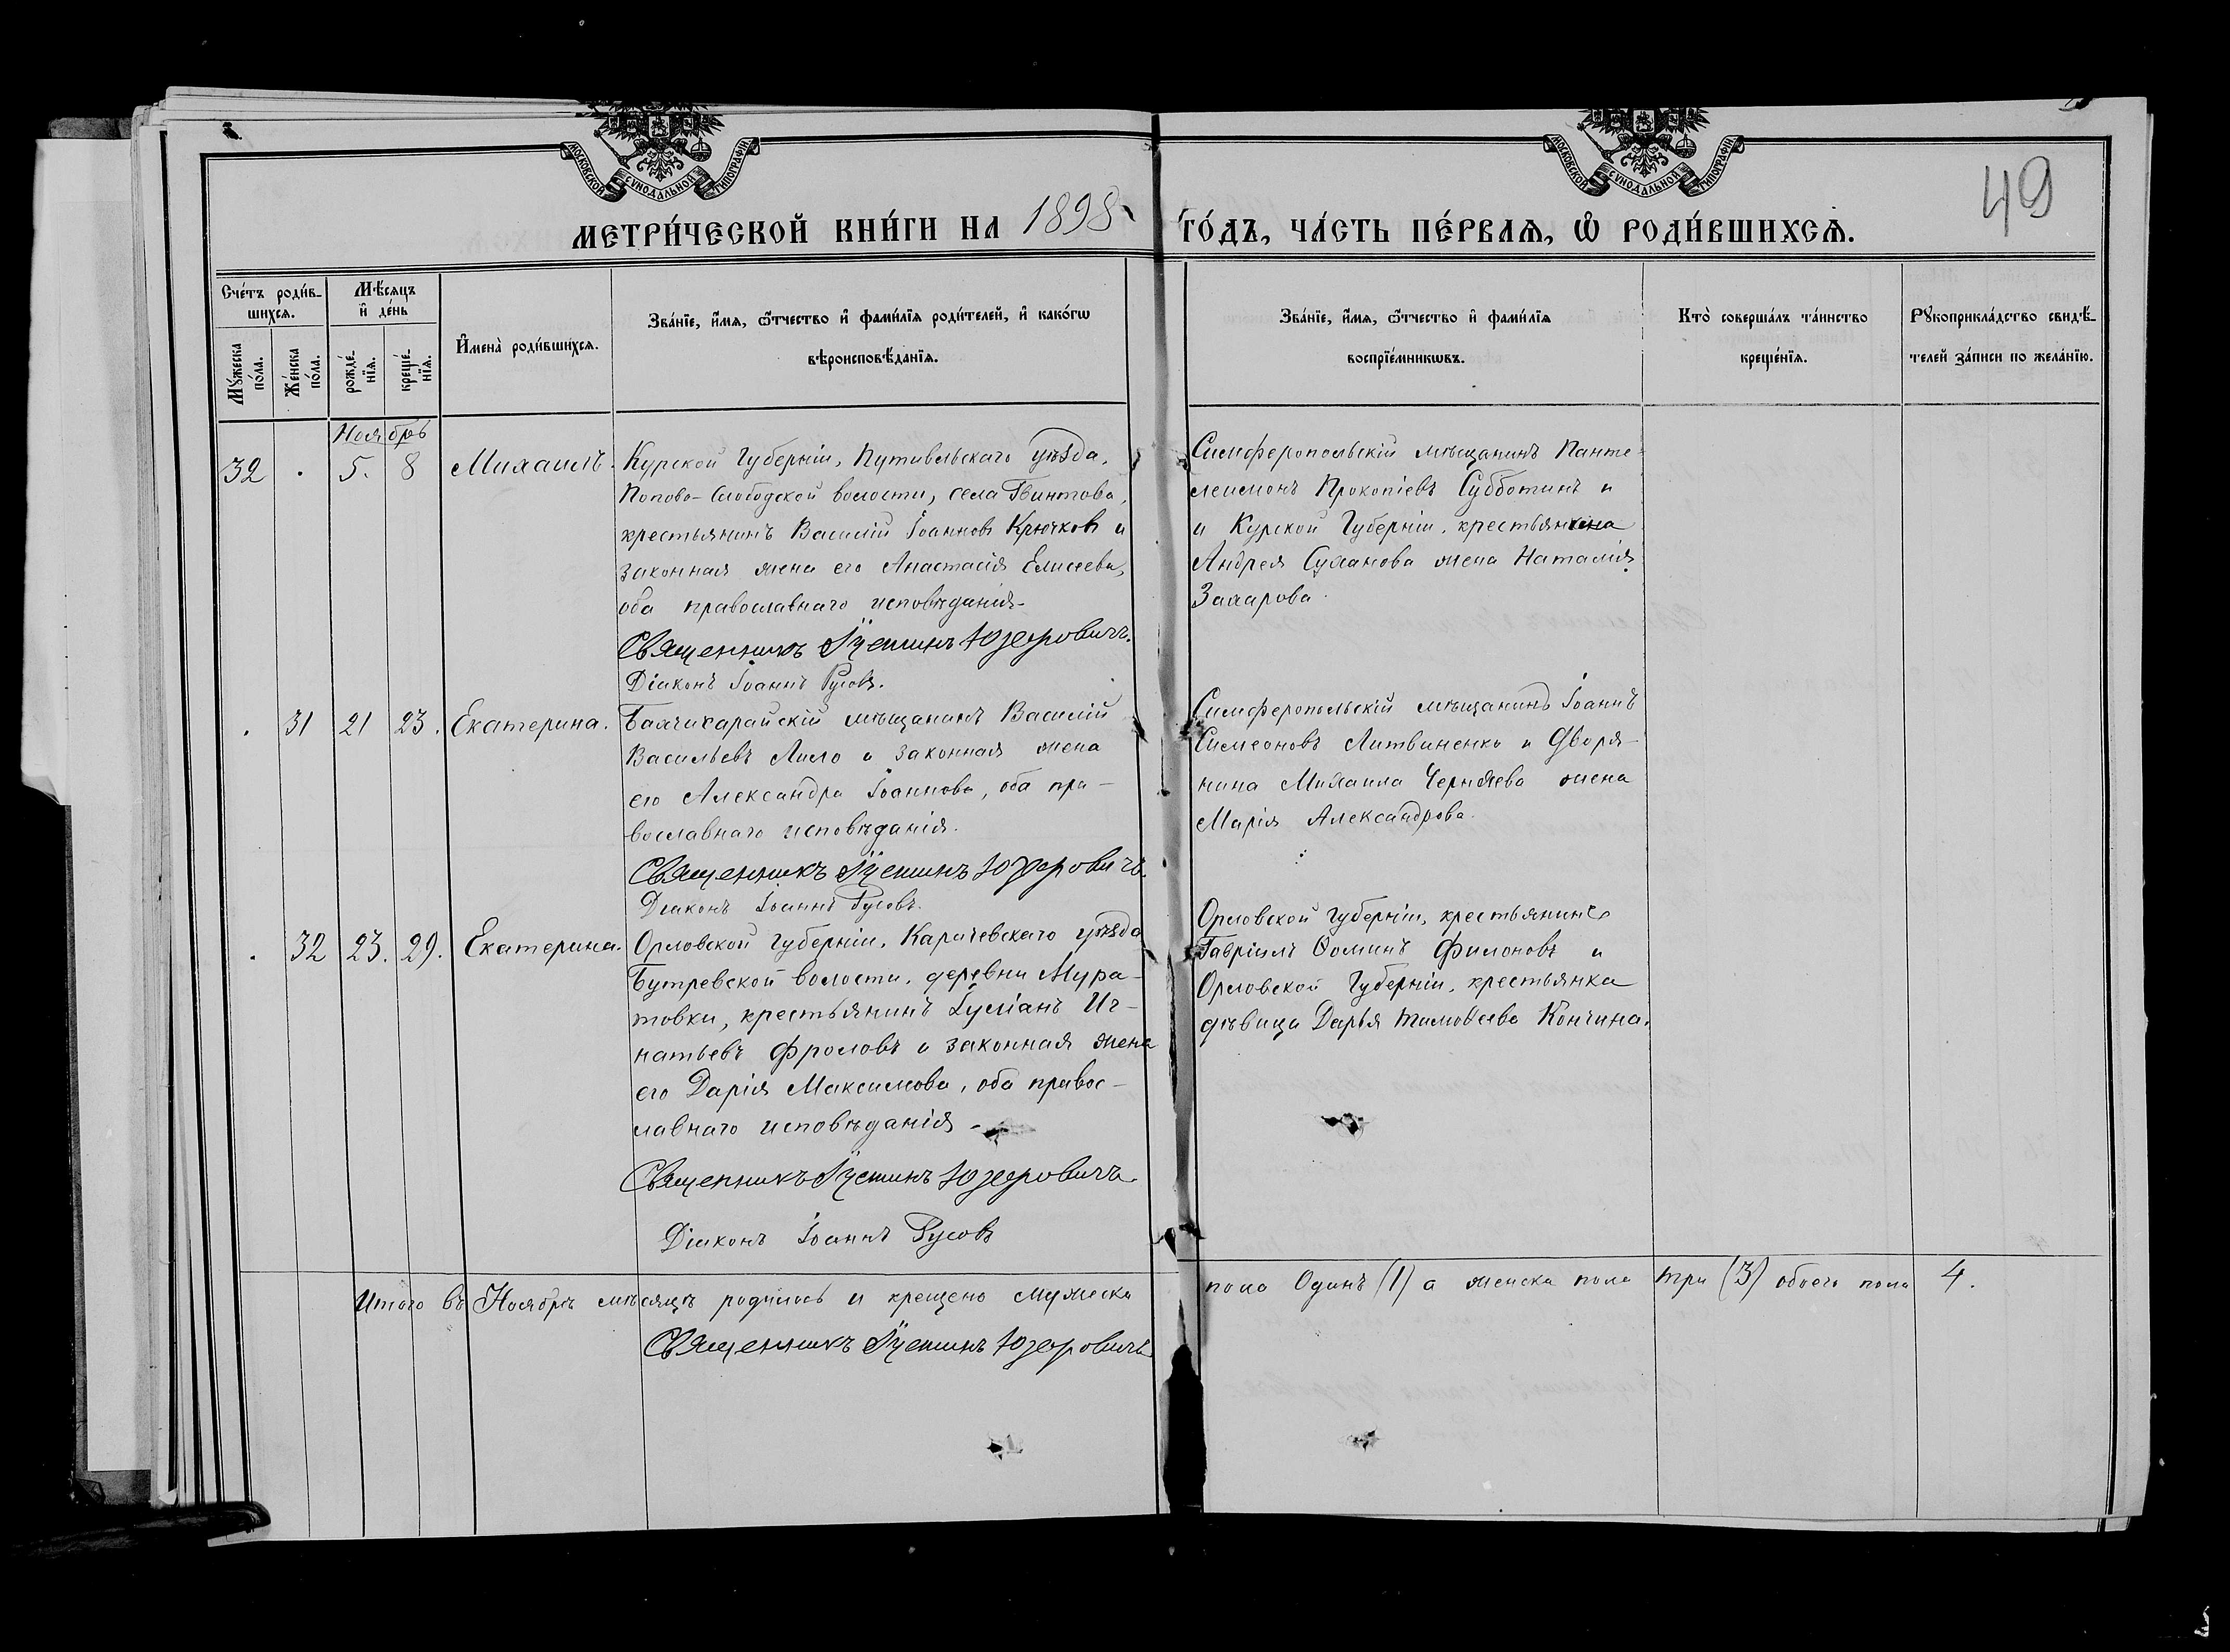 МОСКОВСКОЙ СѴНОДАЛЬНОЙ ТИПОГРАФІИ
МОСКОВСКОЙ СѴНОДАЛЬНОЙ ТИПОГРАФІИ
49
МЕТРИ́ЧЕСКОЙ КНИ́ГИ НА 1898 ГО́ДЪ, ЧА́СТЬ ПЕ́РВАѦ, Ѽ РОДИ́ВШИХСѦ.
Сче́тъ роди́в-
шихсѧ.
Мѣ́сѧцъ
и҆ де́нь
Мꙋ́жеска
по́ла.
Же́нска
по́ла.
рожде́-
нїѧ.
креще́-
нїѧ.
И҆мена̀ роди́вшихсѧ.
Зва́нїе, и҆́мѧ, ѻ҆́тчество и҆ фами́лїѧ роди́телей, и҆ како́гѡ
вѣроисповѣ́данїѧ.
Зва́нїе, и҆́мѧ, ѻ҆́тчество и҆ фами́лїѧ
воспрїе́мникѡвъ.
Кто̀ соверша́лъ та́инство
креще́нїѧ.
Рꙋкоприкла́дство свидѣ́-
телей за́писи по жела́нїю.
Ноябрь
32 . 5. 8 Михаилъ.
Курской Губерніи, Путивльскаго уѣзда,
Попово-Слободской волости, села Гвинтова,
крестьянинъ Василій Іоанновъ Крючковъ и
законная жена его Анастасія Елисеева,
оба православнаго исповѣданія.
Священникъ Іустинъ Юзефовичъ.
Діаконъ Іоаннъ Русовъ.
Симферопольскій мѣщанинъ Панте-
леимонъ Прокопіевъ Субботинъ и
и Курской Губерніи, крестьянина
Андрея Суханова жена Наталія
Захарова.
. 31 21 23. Екатерина.
Бахчисарайскій мѣщанинъ Василій
Васильевъ Лило и законная жена
его Александра Іоаннова, оба пра-
вославнаго исповѣданія.
Священникъ Іустинъ Юзефовичъ.
Діаконъ Іоаннъ Русовъ.
Симферопольскій мѣщанинъ Іоаннъ
Симеоновъ Литвиненко и Дворя-
нина Михаила Черняева жена
Марія Александрова.
. 32 23. 29. Екатерина.
Орловской губерніи, Карачевскаго уѣзда
Бутревской волости, деревни Мура-
товки, крестьянинъ Іуліанъ Иг-
натьевъ Фроловъ и законная жена
его Дарія Максимова, оба правос-
лавнаго исповѣданія -
Священникъ Іустинъ Юзефовичъ.
Діаконъ Іоаннъ Русовъ
Орловской губерніи, крестьянинъ
Гавріилъ Ѳоминъ Филоновъ и
Орловской Губерніи, крестьянка
дѣвица Дарья Тимоѳеева Кончина.
Итого въ Ноябрѣ мѣсяцѣ родилось и крещено мужеска пола Одинъ (1) а женска пола три (3) обоего пола 4.
Священникъ Іустинъ Юзефовичъ